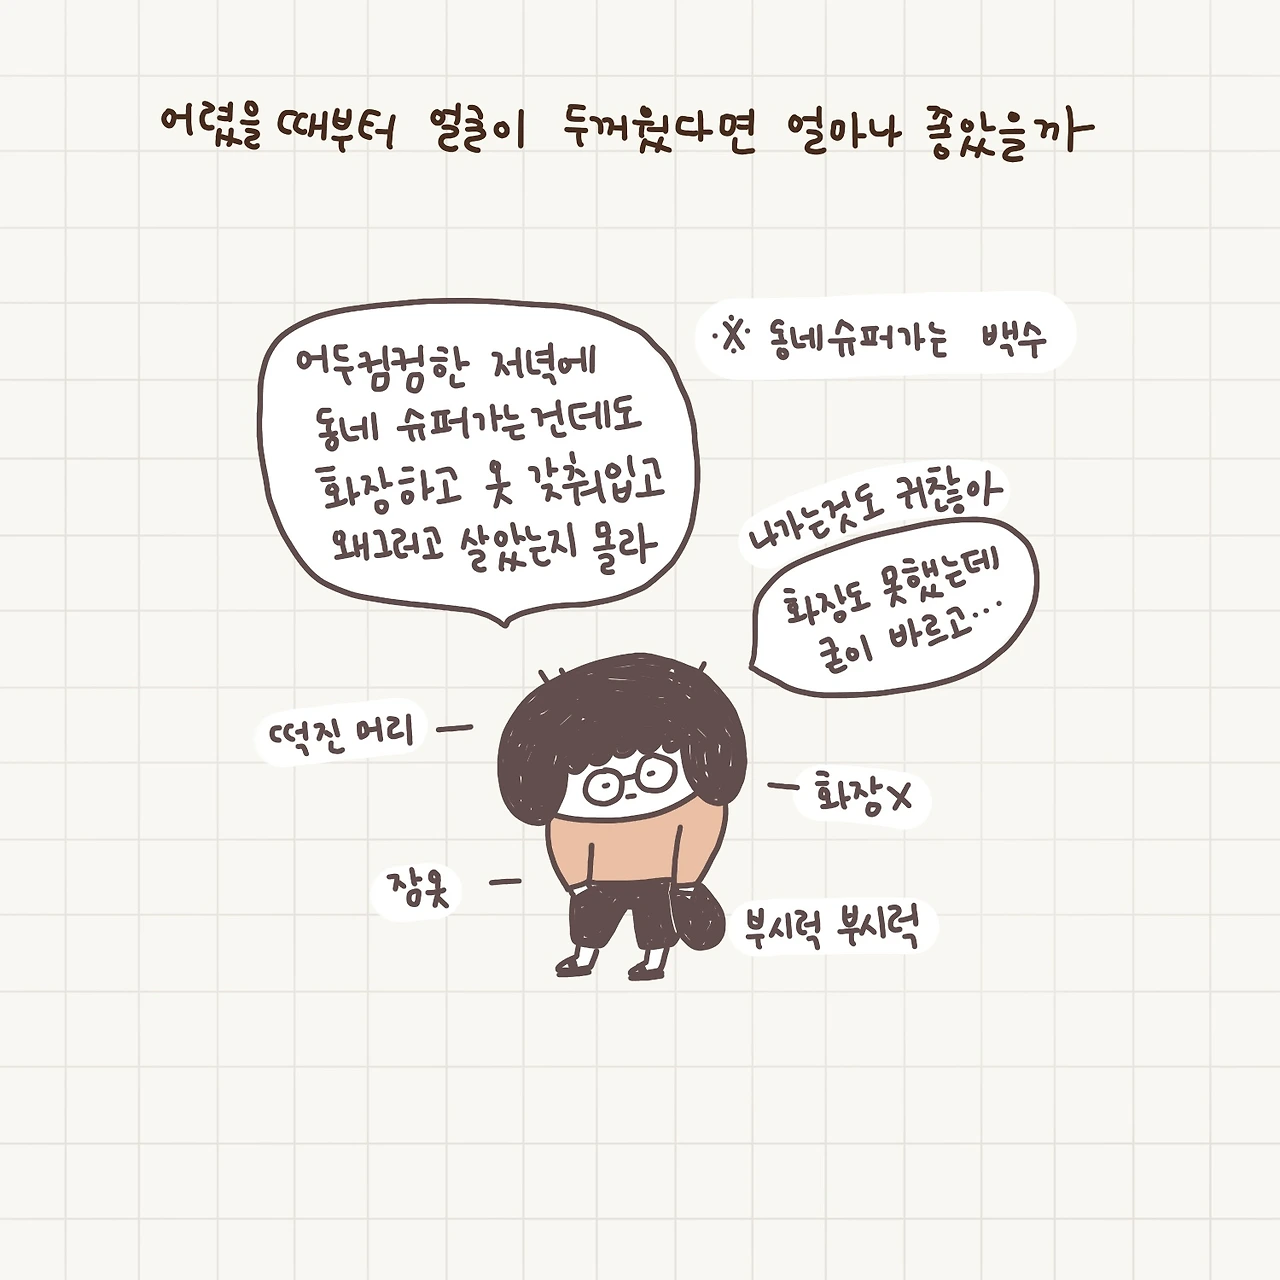 어렸을때부터 얼굴이 두꺼웠다면 얼마나 좋았을까
※ 동네슈퍼가는 백수
어두컴컴한 저녁에
동네 슈퍼가는건데도
화장하고 옷 갖춰입고
왜그러고 살았는지 몰라
나가는것도 귀찮아
화장도 못했는데
굳이 바르고...
떡진 머리
화장X
잠옷
부시럭 부시럭